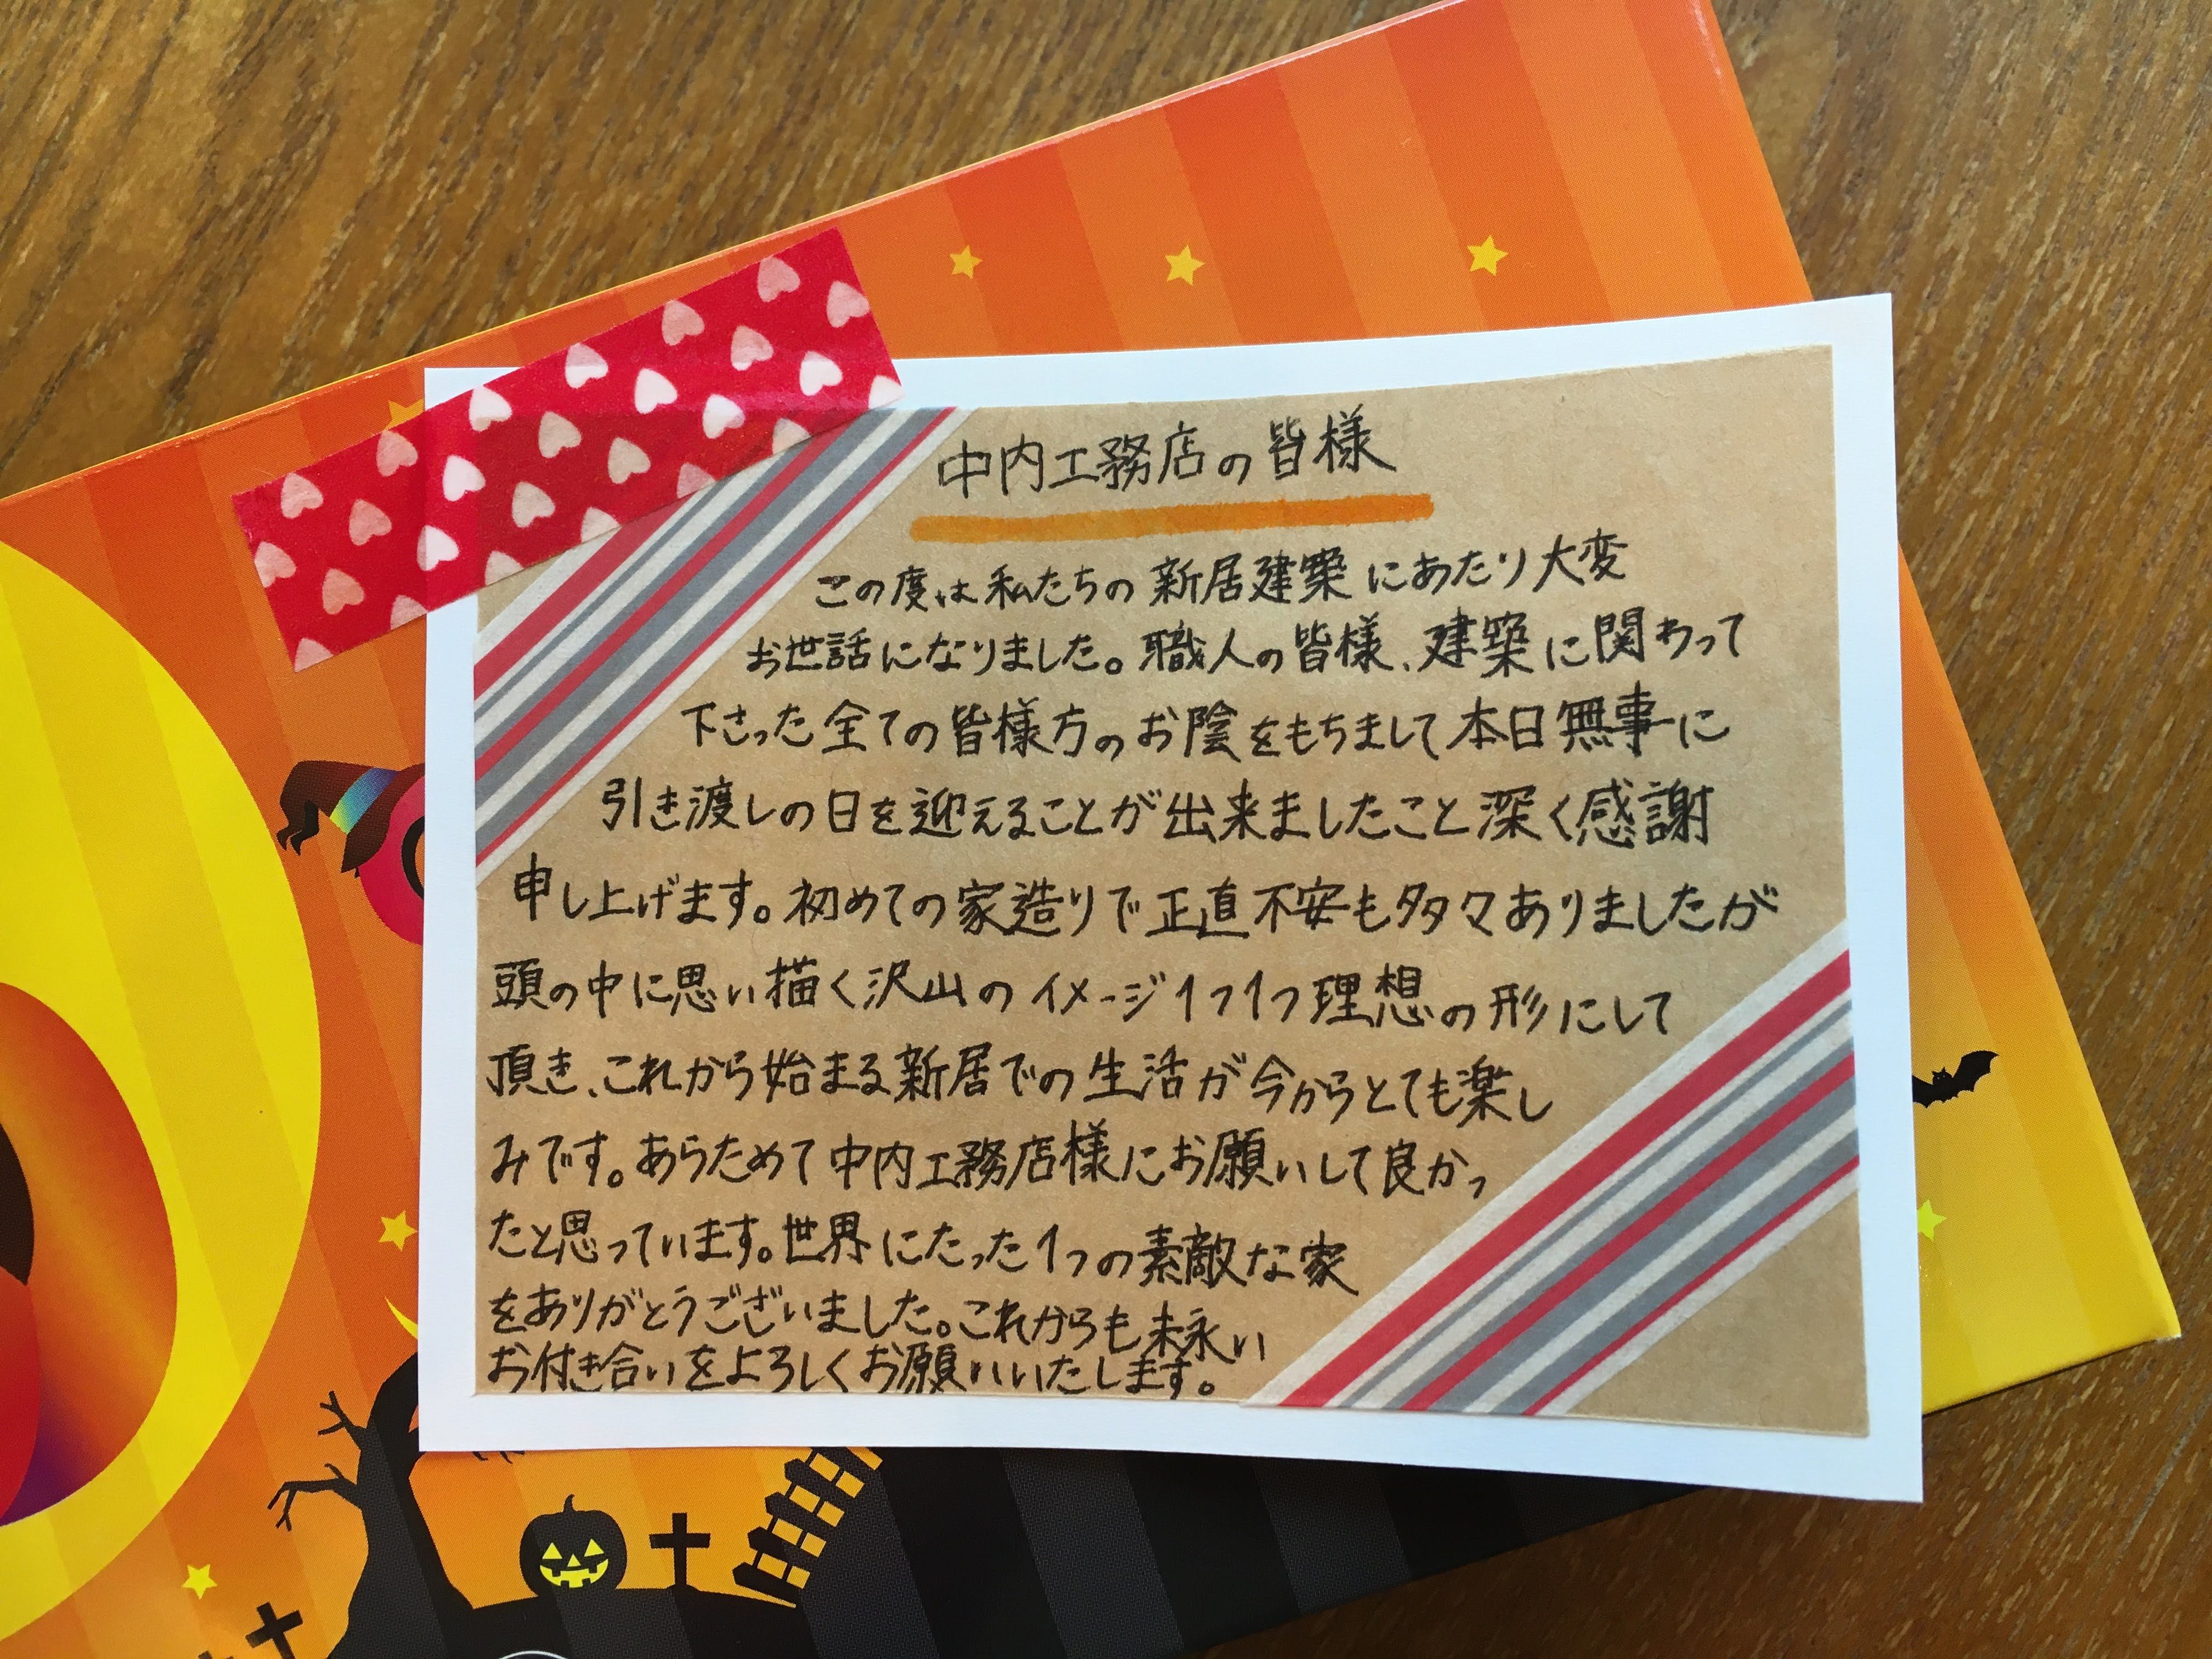 中内工務店の皆様
この度は私たちの新居建築にあたり大変
お世話になりました。職人の皆様、建築に関わって
下さった全ての皆様方のお陰をもちまして本日無事に
引き渡しの日を迎えることが出来ましたこと深く感謝
申し上げます。初めての家造りで正直不安も多々ありましたが
頭の中に思い描く沢山のイメージ1つ1つ理想の形にして
頂き、これから始まる新居での生活が今からとても楽し
みです。あらためて中内工務店様にお願いして良かっ
たと思っています。世界にたった1つの素敵な家
をありがとうございました。これからも末永い
お付き合いをよろしくお願いいたします。